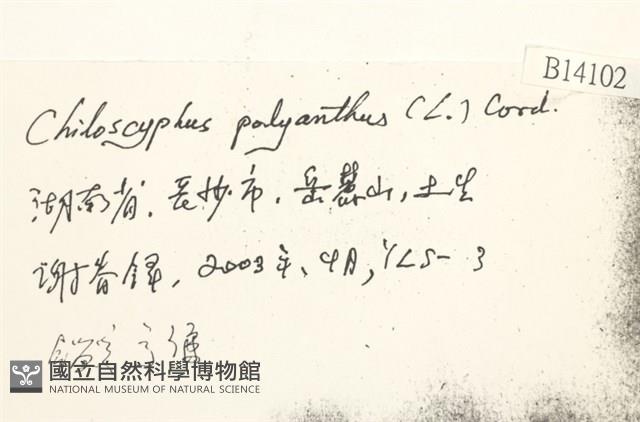 B14102
Chiloscyphus polyanthus (L.) Cord.
湖南省. 長沙市. 岳麓山, 土生
謝春錄, 2003年, 4月, YLS-3
國立自然科學博物館
NATIONAL MUSEUM OF NATURAL SCIENCE